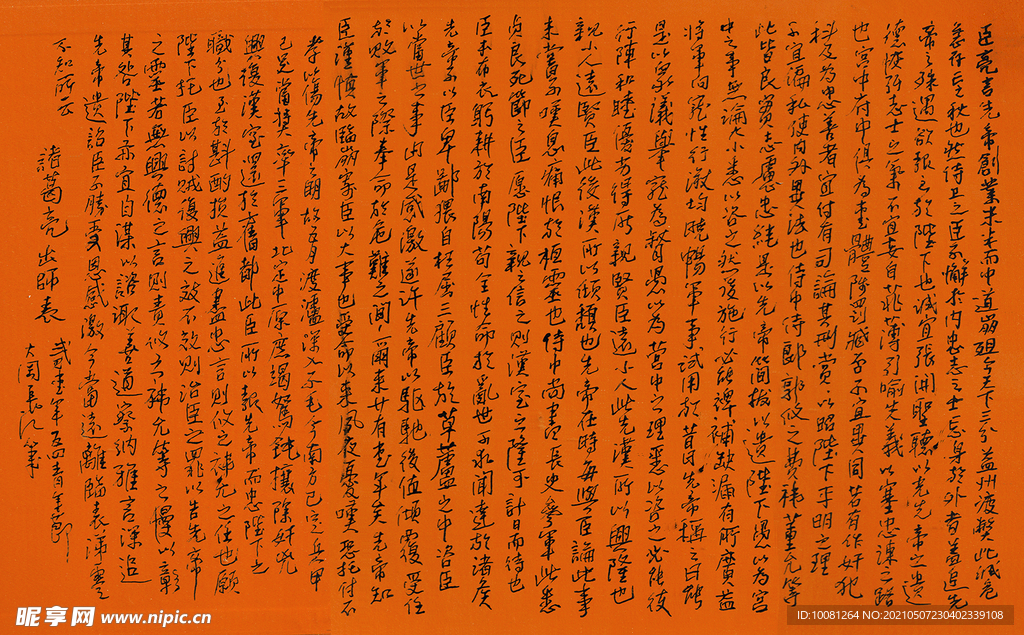 臣亮言先帝創業未半而中道崩殂今天下三分益州疲弊此誠危
急存亡之秋也然侍衛之臣不懈於內忠志之士忘身於外者蓋追先
帝之殊遇欲報之於陛下也誠宜張開聖聽以光先帝之遺
德恢弘志士之氣不宜妄自菲薄引喻失義以塞忠諫之路
也宮中府中俱為壹體陟罰臧否不宜異同若有作奸犯
科及為忠善者宜付有司論其刑賞以昭陛下平明之理
不宜偏私使內外異法也侍中侍郎郭攸之費禕董允等
此皆良實志慮忠純是以先帝簡拔以遺陛下愚以為宮
中之事無論大小悉以咨之然後施行必能裨補缺漏有所廣益
將軍向寵性行淑均曉暢軍事試用於昔日先帝稱之曰能
是以眾議舉寵為督愚以為營中之理悉以咨之必能使
行陣和睦優劣得所親賢臣遠小人此先漢所以興隆也
親小人遠賢臣此後漢所以傾頹也先帝在時每與臣論此事
未嘗不嘆息痛恨於桓靈也侍中尚書長史參軍此悉
貞良死節之臣願陛下親之信之則漢室之隆可計日而待也
臣本布衣躬耕於南陽苟全性命於亂世不求聞達於諸侯
先帝不以臣卑鄙猥自枉屈三顧臣於草蘆之中咨臣
以當世之事由是感激遂許先帝以驅馳後值傾覆受任
於敗軍之際奉命於危難之間爾來廿有壹年矣先帝知
臣謹慎故臨崩寄臣以大事也受命以來夙夜憂嘆恐托付不
孝以傷先帝之明故五月渡瀘深入不毛今南方已定兵甲
已足當獎率三軍北定中原庶竭駑鈍攘除奸兇
興復漢室還於舊都此臣所以報先帝而忠陛下之
職分也至於斟酌損益進盡忠言則攸之禕允之任也願
陛下托臣以討賊復興之效不效則治臣之罪以告先帝
之靈若無興德之言則責攸之禕允等之慢以彰
其咎陛下亦宜自謀以諮諏善道察納雅言深追
先帝遺詔臣不勝受恩感激今當遠離臨表涕零
不知所云
諸葛亮出師表
昵享网 www.nipic.cn
ID:10081264 NO:20210507230402339108